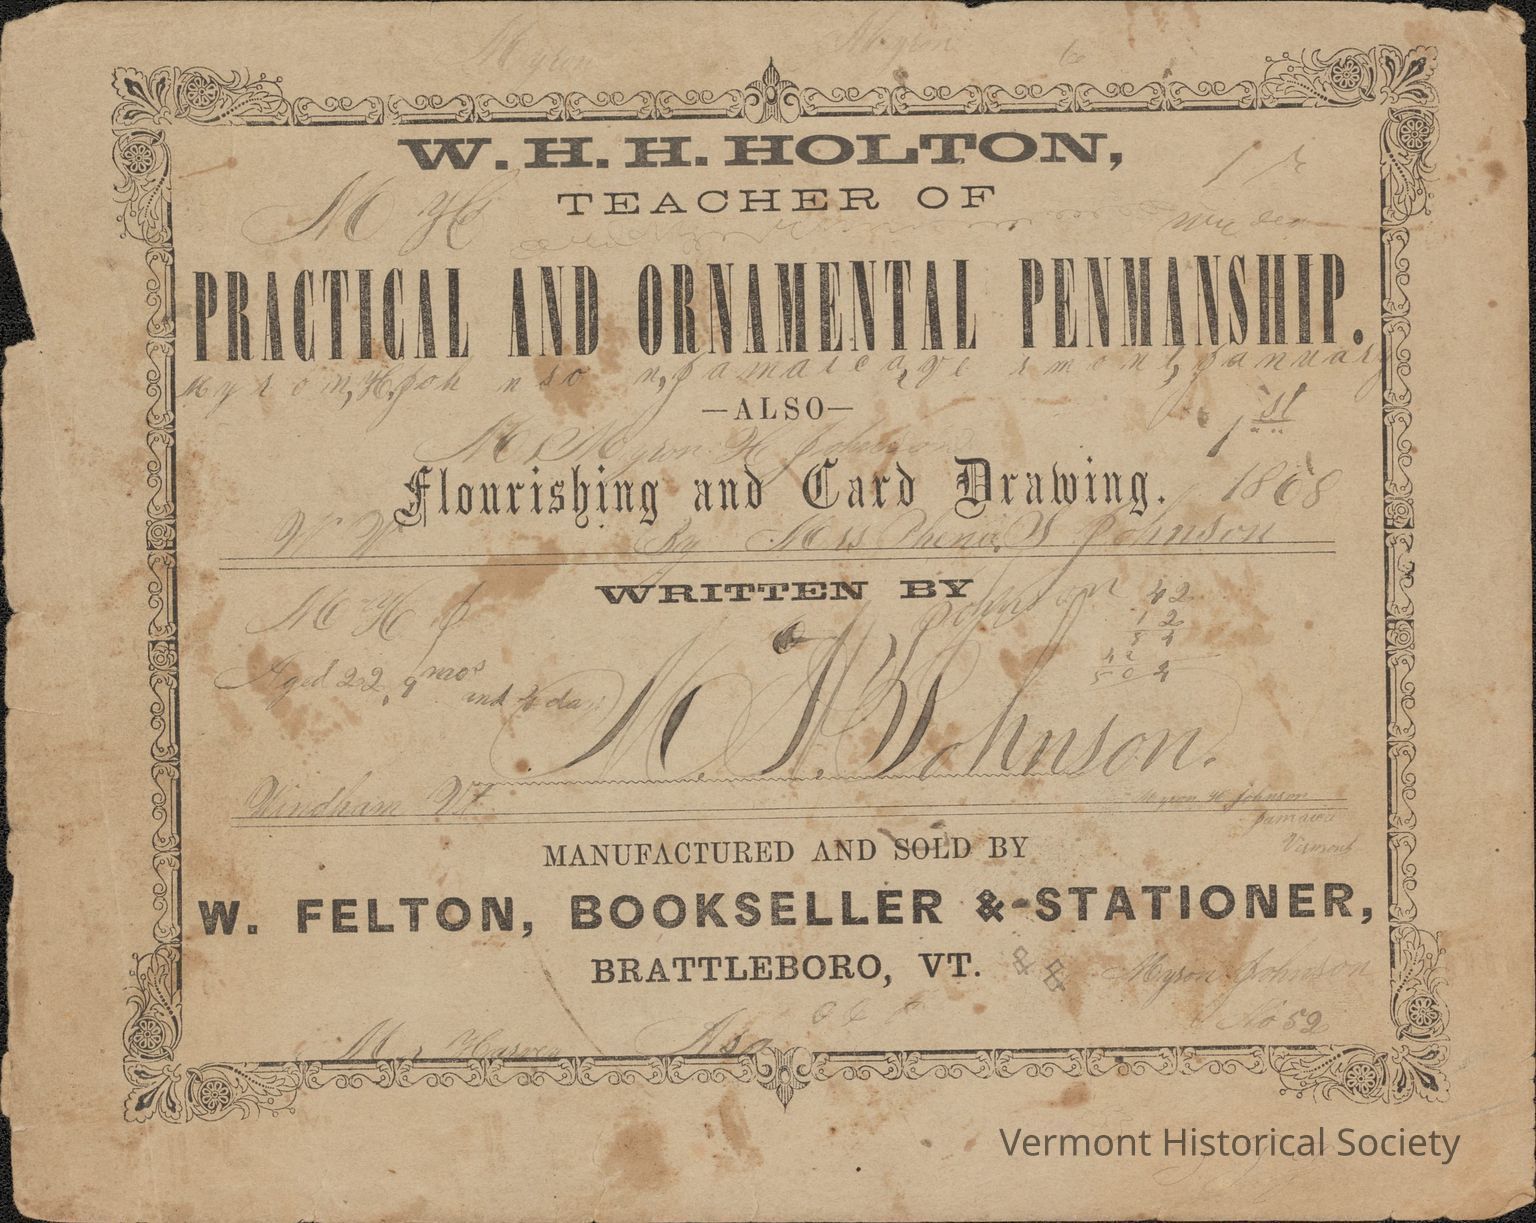 Myron
W. H. H. HOLTON,
TEACHER OF
M H
PRACTICAL AND ORNAMENTAL PENMANSHIP.
Myron, H. Johnson, Jamaica, Vermont, January
—ALSO—
1st
Myron H Johnson
Flourishing and Card Drawing.
1868
By Mrs Johnson
WRITTEN BY
Johnson
42
12
84
42
504
M H J
Aged 22, 9 mos and 4 da
M. H. Johnson.
Windham Vt.
Myron H Johnson
Jamaica
Vermont
MANUFACTURED AND SOLD BY
W. FELTON, BOOKSELLER & STATIONER,
BRATTLEBORO, VT.
& &
Myron Johnson
No 52
Vermont Historical Society